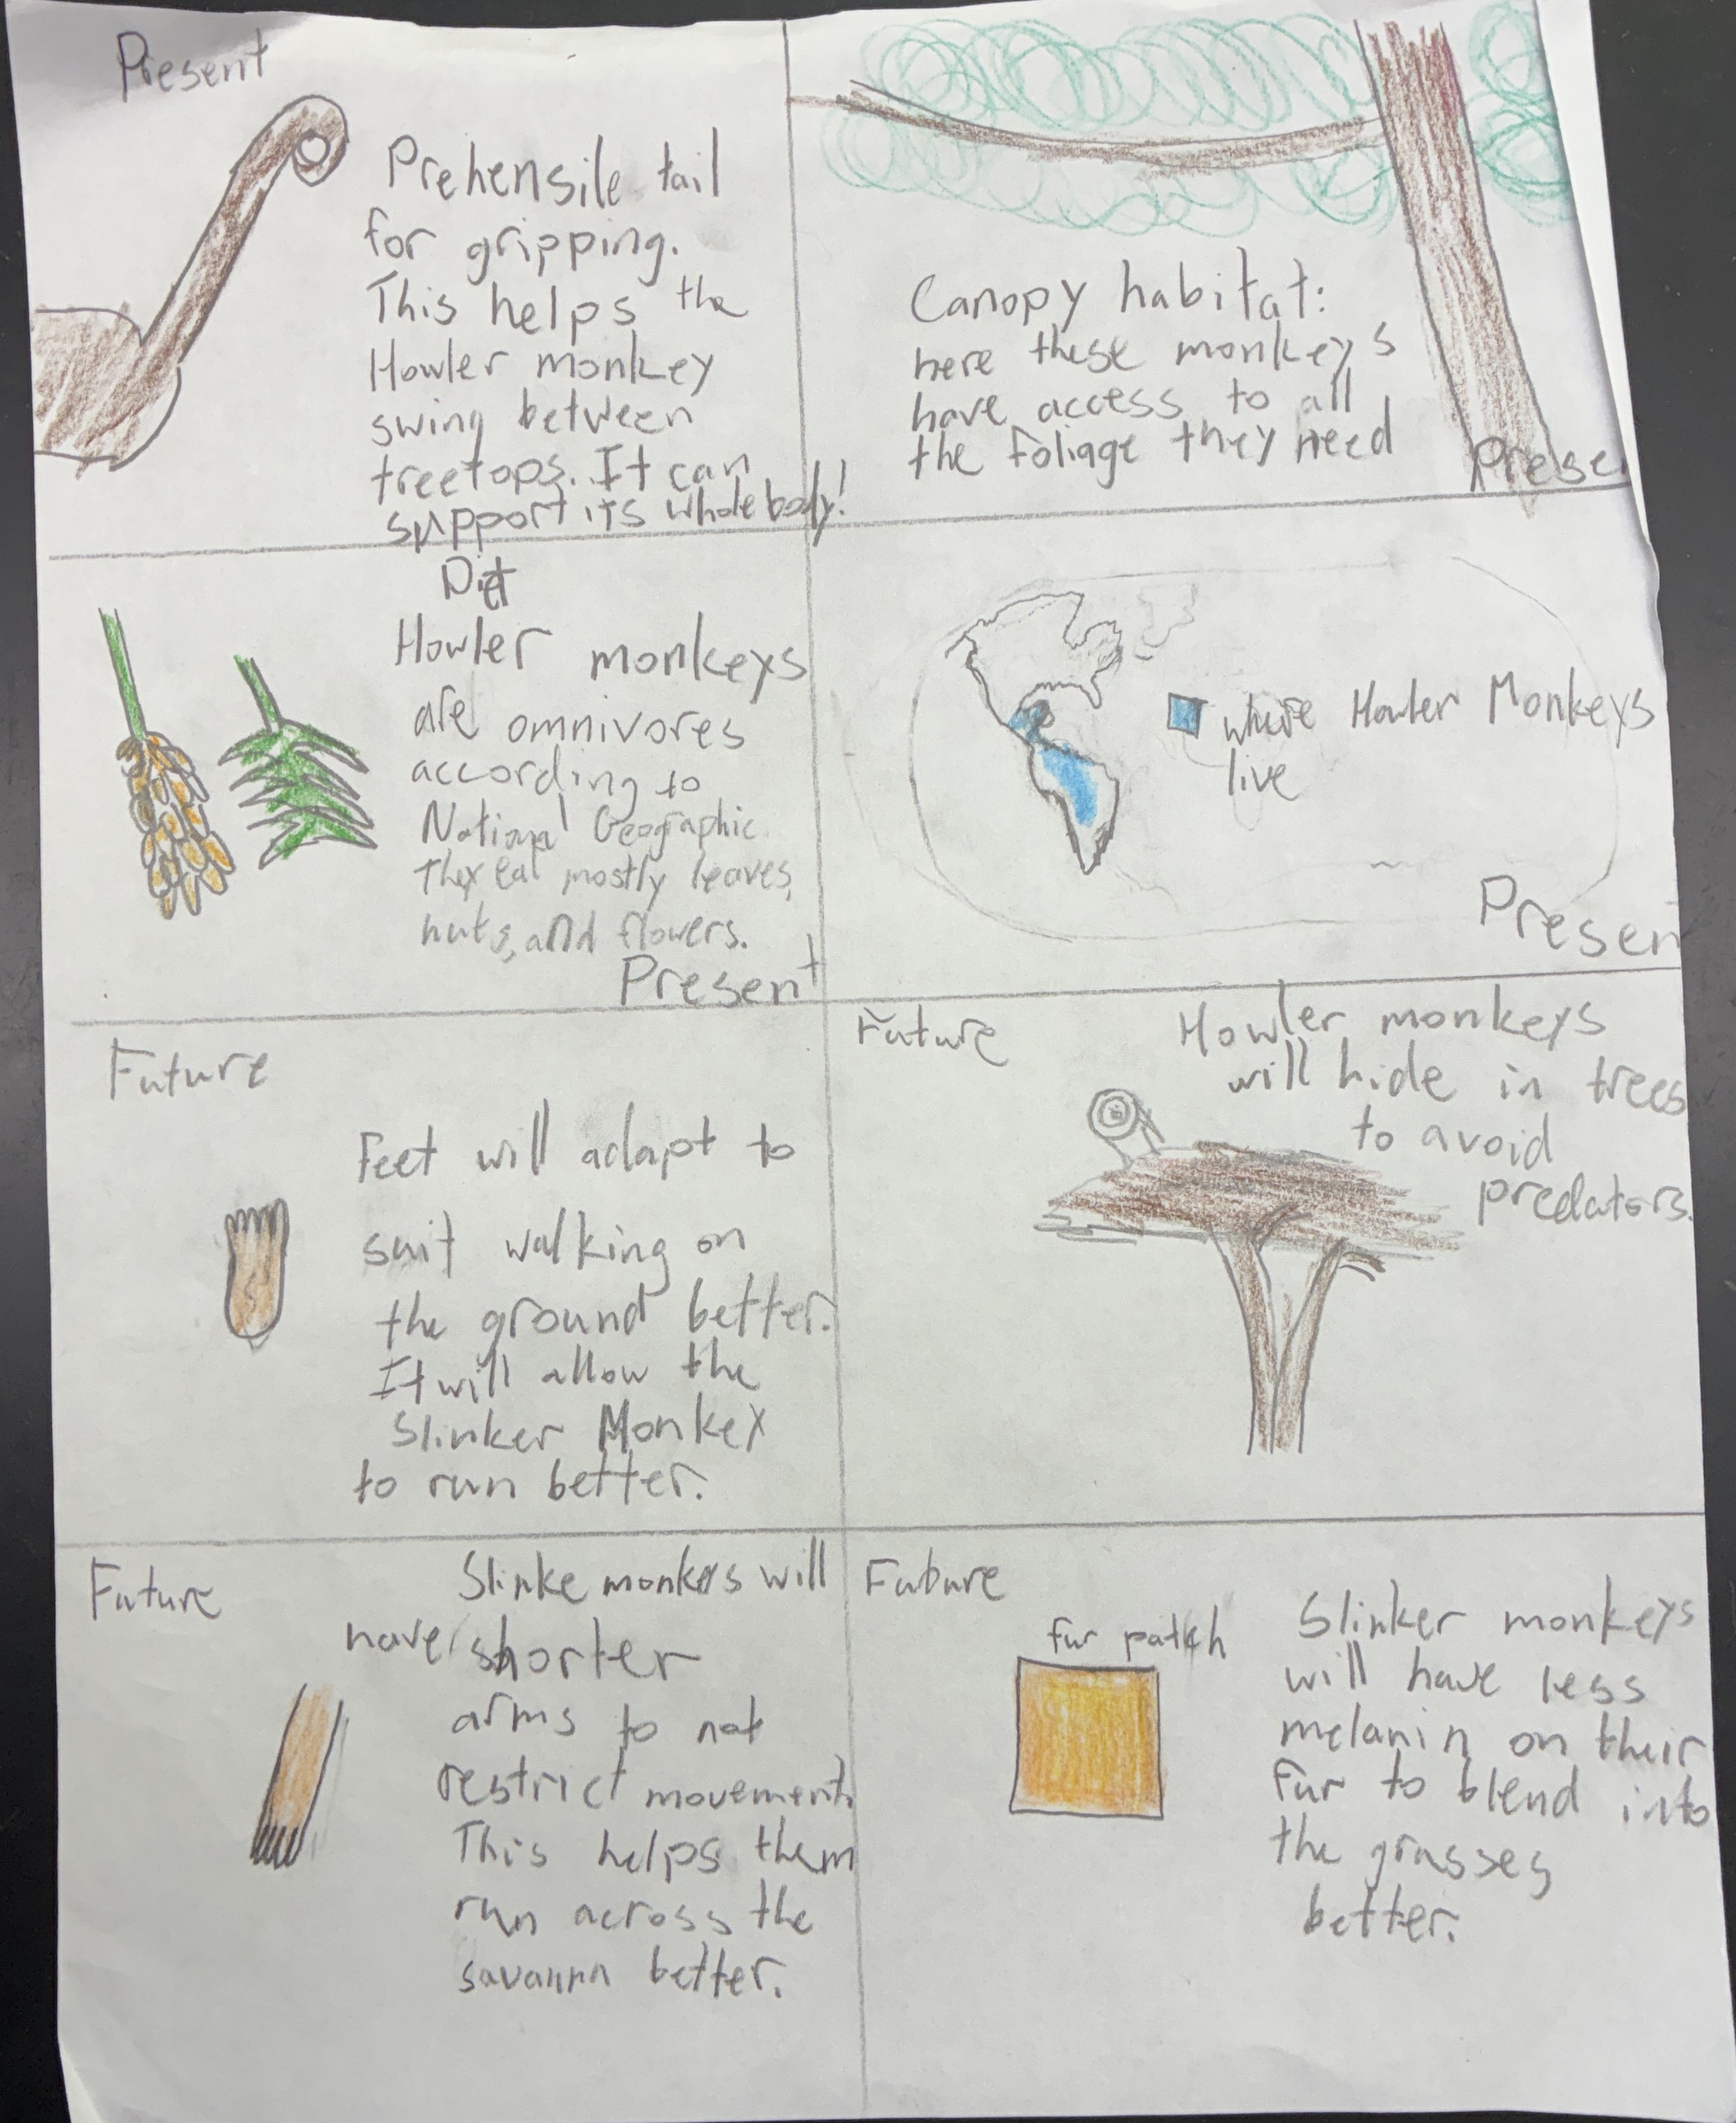 Present
Prehensile tail
for gripping.
This helps the
Howler monkey
swing between
treetops. It can
support its whole body!
Canopy habitat:
here these monkeys
have access to all
the foliage they need
Prese
Diet
Howler monkeys
are omnivores
according to
National Geographic
They eat mostly leaves,
nuts, and flowers.
Present
where Howler Monkeys
live
Presen
Future
Feet will adapt to
suit walking on
the ground better.
It will allow the
Slinker Monkey
to run better.
Future
Howler monkeys
will hide in trees
to avoid
predators.
Future
Slinke monkeys will
have shorter
arms to not
restrict movement.
This helps them
run across the
savanna better.
Future
fur patch
Slinker monkeys
will have less
melanin on their
fur to blend into
the grasses
better.